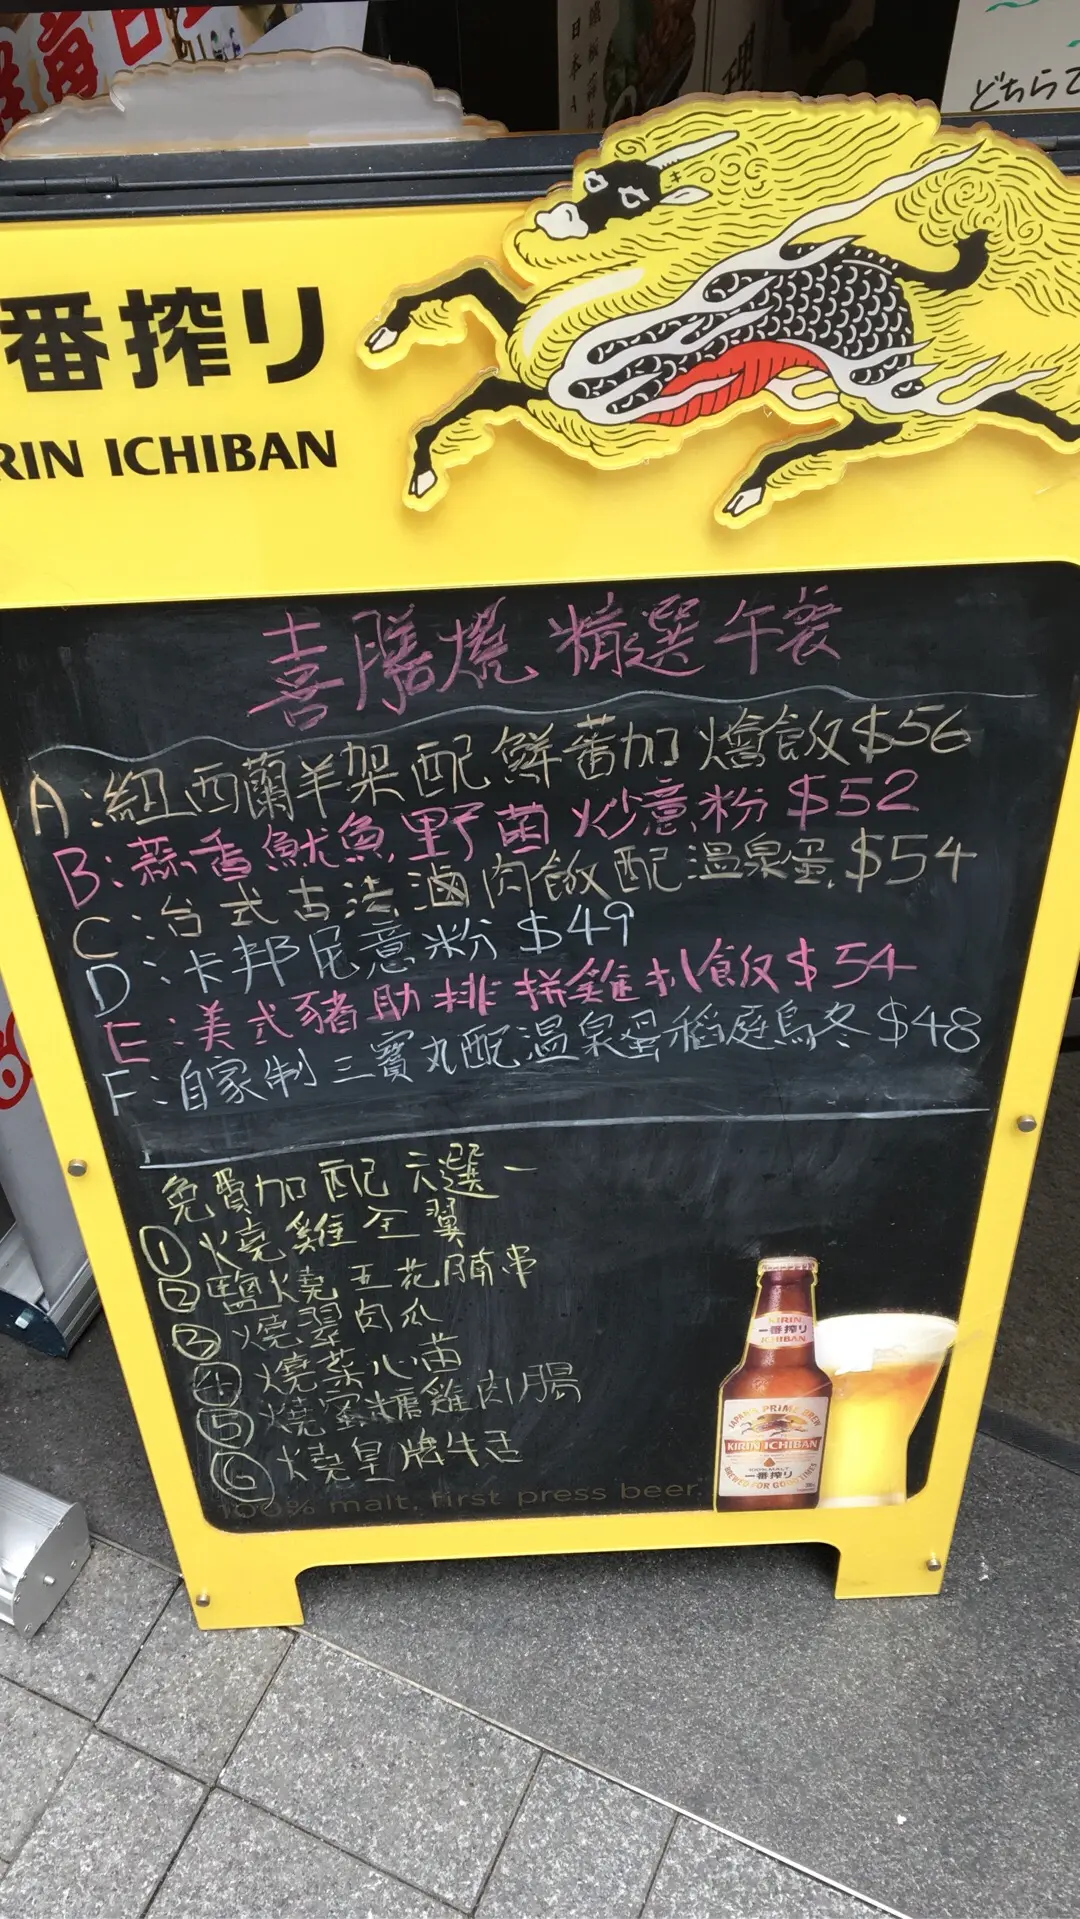 日本
理
どちらで
一番搾り
RIN ICHIBAN
喜膳燒 精選午餐
A:紐西蘭羊架配鮮蕃加燴飯$56
B:蒜香魷魚野菌炒意粉$52
C:台式古法滷肉飯配溫泉蛋$54
D:卡邦尼意粉$49
E:美式豬助排拼雞扒飯$54
F:自家制三寶丸配溫泉蛋稻庭烏冬$48
免費加配六選一
①燒雞全翼
②鹽燒五花腩串
③燒翠肉瓜
④燒菜心苗
⑤燒蜜糖雞肉腸
⑥燒皇牌牛舌
100% malt, first press beer.
KIRIN
一番搾り
ICHIBAN
JAPAN'S PRIME BREW
KIRIN ICHIBAN
100% MALT
一番搾り
BREWED FOR GOOD TIMES